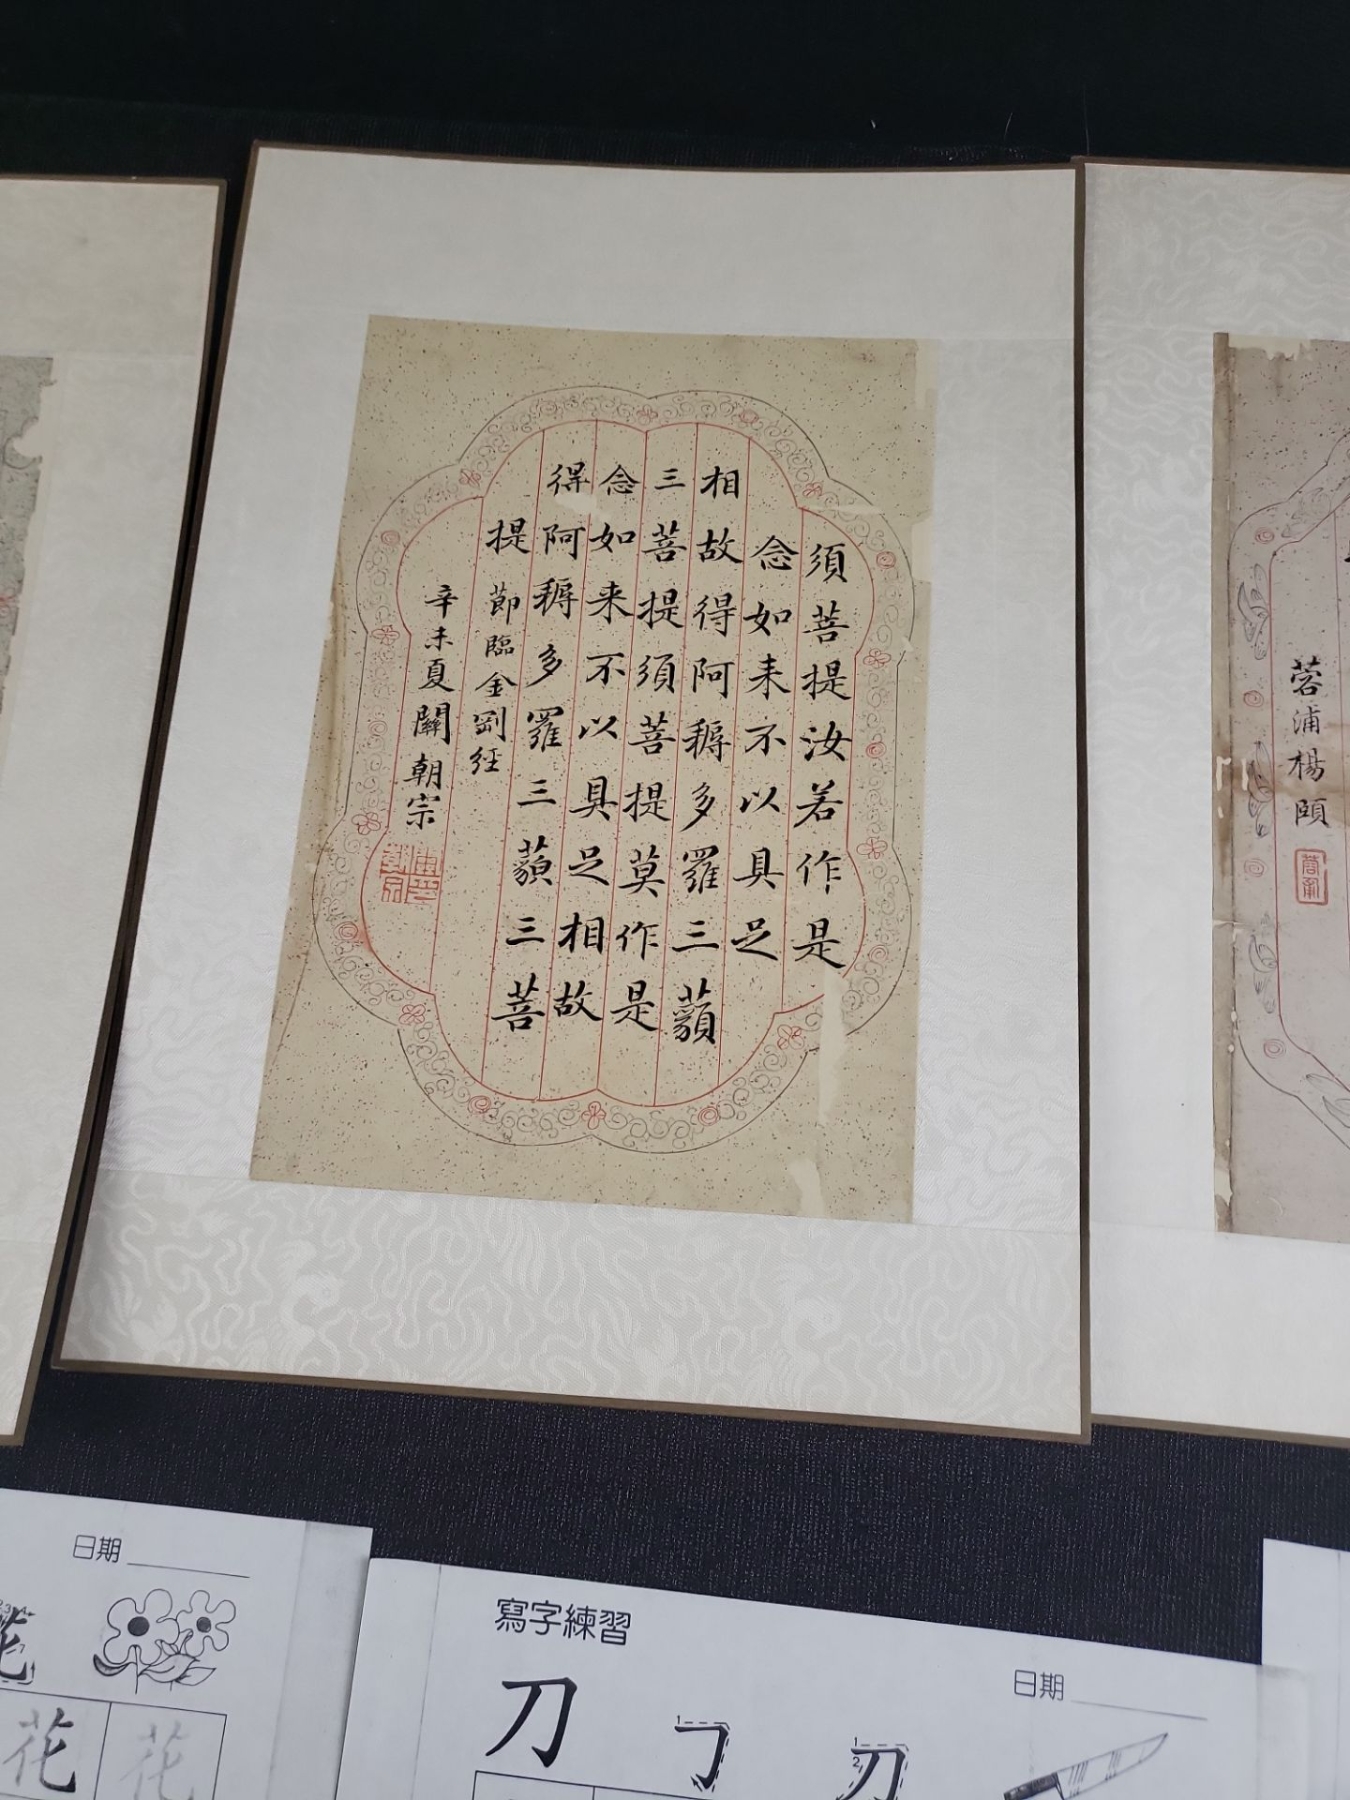 須菩提汝若作是
念如来不以具足
相故得阿耨多羅三藐
三菩提須菩提莫作是
念如来不以具足相故
得阿耨多羅三藐三菩
提 節臨金剛経
辛未夏關朝宗
蓉浦楊頤
日期
花
花 花
寫字練習
日期
刀